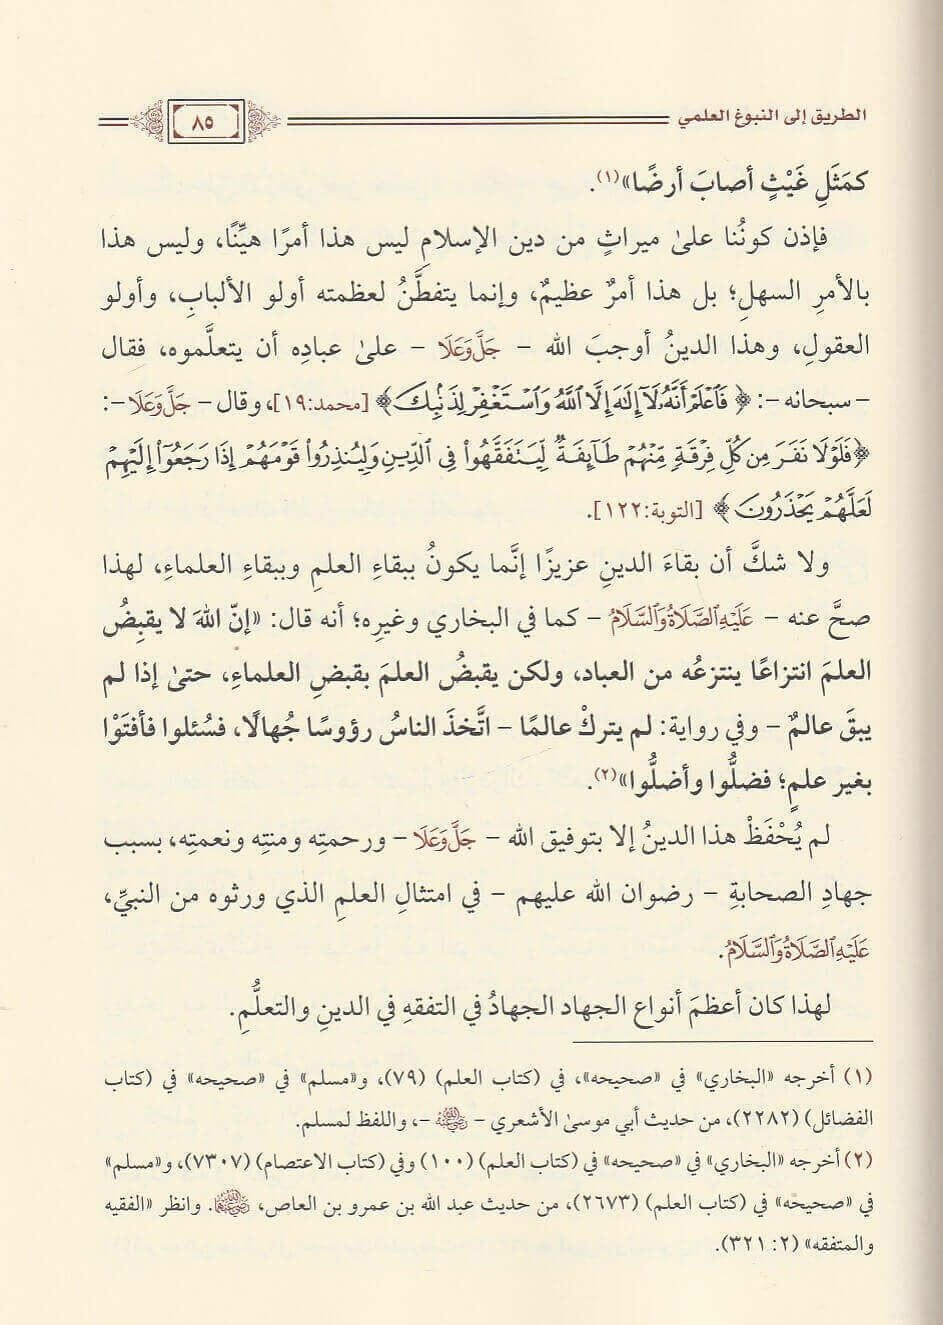 الطريق إلى النبوغ العلمي
٨٥
كمَثَلِ غَيْثٍ أصابَ أرضًا»(١).
فإذن كونُنا علىٰ ميراثٍ من دين الإسلامِ ليس هذا أمرًا هيِّنًا، وليس هذا
بالأمرِ السهلِ؛ بل هذا أمرٌ عظيمٌ، وإنما يتفطَّنُ لعظمته أولو الألبابِ، وأولو
العقولِ، وهذا الدينُ أوجبَ الله - جَلَّ وَعَلَا - علىٰ عبادِه أن يتعلَّموه، فقال
- سبحانه -: ﴿فَٱعۡلَمۡ أَنَّهُۥ لَآ إِلَٰهَ إِلَّا ٱللَّهُ وَٱسۡتَغۡفِرۡ لِذَنۢبِكَ﴾ [محمد:١٩]، وقال - جَلَّ وَعَلَا -:
﴿فَلَوۡلَا نَفَرَ مِن كُلِّ فِرۡقَةٖ مِّنۡهُمۡ طَآئِفَةٞ لِّيَتَفَقَّهُواْ فِي ٱلدِّينِ وَلِيُنذِرُواْ قَوۡمَهُمۡ إِذَا رَجَعُوٓاْ إِلَيۡهِمۡ
لَعَلَّهُمۡ يَحۡذَرُونَ﴾ [التوبة:١٢٢].
ولا شكَّ أن بقاءَ الدينِ عزيزًا إنَّما يكونُ ببقاءِ العلمِ وببقاءِ العلماءِ، لهذا
صحَّ عنه - عَلَيْهِ الصَّلَاةُ وَالسَّلَامُ - كما في البخاري وغيرِه؛ أنه قال: «إنّ اللهَ لا يقبِضُ
العلمَ انتزاعًا ينتزعُه من العباد، ولكن يقبضُ العلمَ بقبضِ العلماءِ، حتىٰ إذا لم
يبقَ عالمٌ - وفي رواية: لم يتركْ عالمًا - اتَّخذَ الناسُ رؤوسًا جُهالًا، فسُئلوا فأفتَوْا
بغير علمٍ؛ فضلُّوا وأضلُّوا»(٢).
لم يُحْفَظْ هذا الدينُ إلا بتوفيق الله - جَلَّ وَعَلَا - ورحمتِه ومنتِه ونعمتِه، بسبب
جهادِ الصحابةِ - رضوان الله عليهم - في امتثالِ العلمِ الذي ورثوه من النبيِّ،
عَلَيْهِ الصَّلَاةُ وَالسَّلَامُ.
لهذا كان أعظمَ أنواع الجهاد الجهادُ في التفقهِ في الدينِ والتعلُّمِ.
(١) أخرجه «البخاري» في «صحيحه»، في (كتاب العلم) (٧٩)، و«مسلم» في «صحيحه» في (كتاب
الفضائل) (٢٢٨٢)، من حديث أبي موسىٰ الأشعري - رضي الله عنه -، واللفظ لمسلم.
(٢) أخرجه «البخاري» في «صحيحه» في (كتاب العلم) (١٠٠) وفي (كتاب الاعتصام) (٧٣٠٧)، و«مسلم»
في «صحيحه» في (كتاب العلم) (٢٦٧٣)، من حديث عبد الله بن عمرو بن العاص، رضي الله عنهما. وانظر «الفقيه
والمتفقه» (٢: ٣٢١).